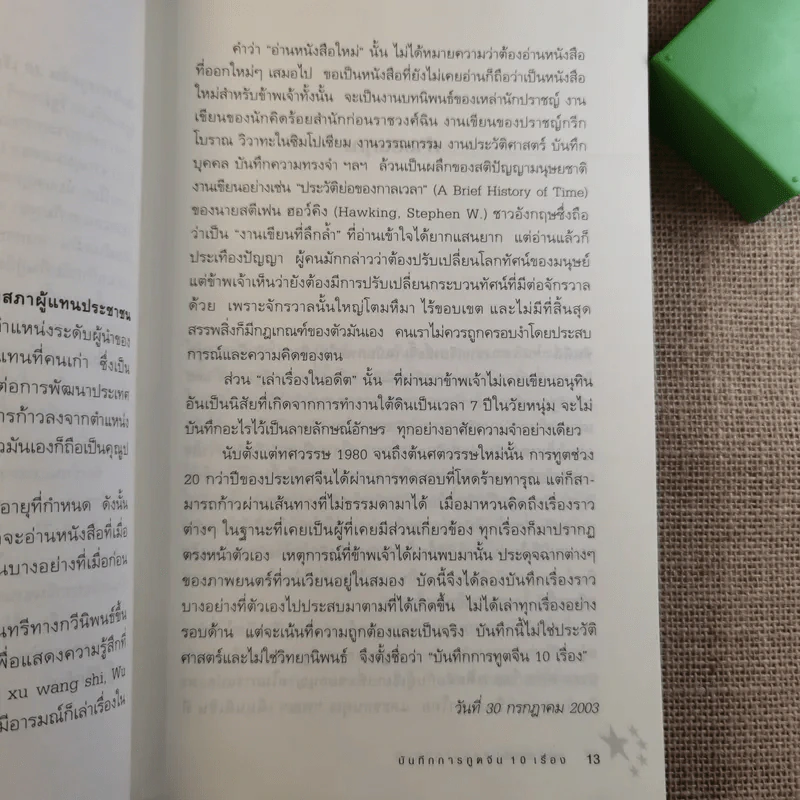 สภาผู้แทนประชาชน
ตำแหน่งระดับผู้นำของ
แทนที่คนเก่า ซึ่งเป็น
ต่อการพัฒนาประเทศ
การก้าวลงจากตำแหน่ง
วมันเองก็ถือเป็นคุณูป
อายุที่กำหนด ดังนั้น
จะอ่านหนังสือที่เมื่อ
นบางอย่างที่เมื่อก่อน
นทรีทางกวีนิพนธ์ขึ้น
พื่อแสดงความรู้สึกที่
xu wang shi, Wu
มีอารมณ์ก็เล่าเรื่องใน
คำว่า "อ่านหนังสือใหม่" นั้น ไม่ได้หมายความว่าต้องอ่านหนังสือ
ที่ออกใหม่ๆ เสมอไป ขอเป็นหนังสือที่ยังไม่เคยอ่านก็ถือว่าเป็นหนังสือ
ใหม่สำหรับข้าพเจ้าทั้งนั้น จะเป็นงานบทนิพนธ์ของเหล่านักปราชญ์ งาน
เขียนของนักคิดร้อยสำนักก่อนราชวงศ์ฉิน งานเขียนของปราชญ์กรีก
โบราณ วิวาทะในซิมโปเซียม งานวรรณกรรม งานประวัติศาสตร์ บันทึก
บุคคล บันทึกความทรงจำ ฯลฯ ล้วนเป็นผลึกของสติปัญญามนุษยชาติ
งานเขียนอย่างเช่น "ประวัติย่อของกาลเวลา" (A Brief History of Time)
ของนายสตีเฟน ฮอว์คิง (Hawking, Stephen W.) ชาวอังกฤษซึ่งถือ
ว่าเป็น "งานเขียนที่ลึกล้ำ" ที่อ่านเข้าใจได้ยากแสนยาก แต่อ่านแล้วก็
ประเทืองปัญญา ผู้คนมักกล่าวว่าต้องปรับเปลี่ยนโลกทัศน์ของมนุษย์
แต่ข้าพเจ้าเห็นว่ายังต้องมีการปรับเปลี่ยนกระบวนทัศน์ที่มีต่อจักรวาล
ด้วย เพราะจักรวาลนั้นใหญ่โตมหึมา ไร้ขอบเขต และไม่มีที่สิ้นสุด
สรรพสิ่งก็มีกฎเกณฑ์ของตัวมันเอง คนเราไม่ควรถูกครอบงำโดยประสบ
การณ์และความคิดของตน
ส่วน "เล่าเรื่องในอดีต" นั้น ที่ผ่านมาข้าพเจ้าไม่เคยเขียนอนุทิน
อันเป็นนิสัยที่เกิดจากการทำงานใต้ดินเป็นเวลา 7 ปีในวัยหนุ่ม จะไม่
บันทึกอะไรไว้เป็นลายลักษณ์อักษร ทุกอย่างอาศัยความจำอย่างเดียว
นับตั้งแต่ทศวรรษ 1980 จนถึงต้นศตวรรษใหม่นั้น การทูตช่วง
20 กว่าปีของประเทศจีนได้ผ่านการทดสอบที่โหดร้ายทารุณ แต่ก็สา-
มารถก้าวผ่านเส้นทางที่ไม่ธรรมดามาได้ เมื่อมาหวนคิดถึงเรื่องราว
ต่างๆ ในฐานะที่เคยเป็นผู้ที่เคยมีส่วนเกี่ยวข้อง ทุกเรื่องก็มาปรากฏ
ตรงหน้าตัวเอง เหตุการณ์ที่ข้าพเจ้าได้ผ่านพบมานั้น ประดุจฉากต่างๆ
ของภาพยนตร์ที่วนเวียนอยู่ในสมอง บัดนี้จึงได้ลองบันทึกเรื่องราว
บางอย่างที่ตัวเองไปประสบมาตามที่ได้เกิดขึ้น ไม่ได้เล่าทุกเรื่องอย่าง
รอบด้าน แต่จะเน้นที่ความถูกต้องและเป็นจริง บันทึกนี้ไม่ใช่ประวัติ
ศาสตร์และไม่ใช่วิทยานิพนธ์ จึงตั้งชื่อว่า "บันทึกการทูตจีน 10 เรื่อง"
วันที่ 30 กรกฎาคม 2003
บันทึกการทูตจีน 10 เรื่อง 13